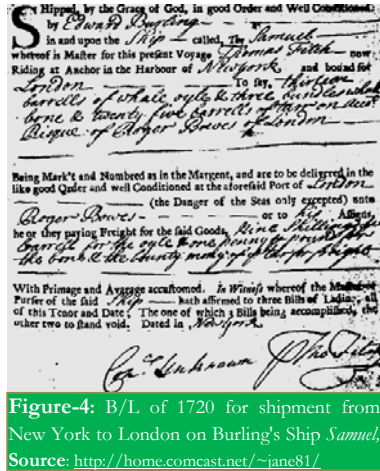 SHipped, by the Grace of God, in good Order and Well Conditioned
by Edward Burling
in and upon the Ship called, The Samuel
whereof is Master for this present Voyage Thomas Fitch now
Riding at Anchor in the Harbour of New york and bound for
London To say, thirteen
barrells of whale oyle & three bundles whale
bone & twenty five barrells of tarr on acco.t
Risque of Roger Bowes of London
Being Mark't and Numbred as in the Margent, and are to be delivered in the
like good Order and well Conditioned at the aforesaid Port of London
(the Danger of the Seas only excepted) unto
Roger Bowes or to his Assigns,
he or they paying Freight for the said Goods, Nine Shillings
barrell for the oyle & one penny
the bone & the bounty money of for freight
With Primage and Avarage accustomed. In Witness whereof the
Purser of the said Ship hath affirmed to three Bills of Lading, all
of this Tenor and Date: The one of which 3 Bills being accomplished, the
other two to stand void. Dated in New york
Unknown
Figure-4: B/L of 1720 for shipment from
New York to London on Burling's Ship Samuel,
Source: http://home.comcast.net/~jane81/